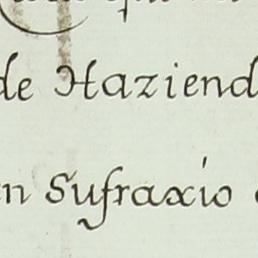 de Haziend
en Sufraxio